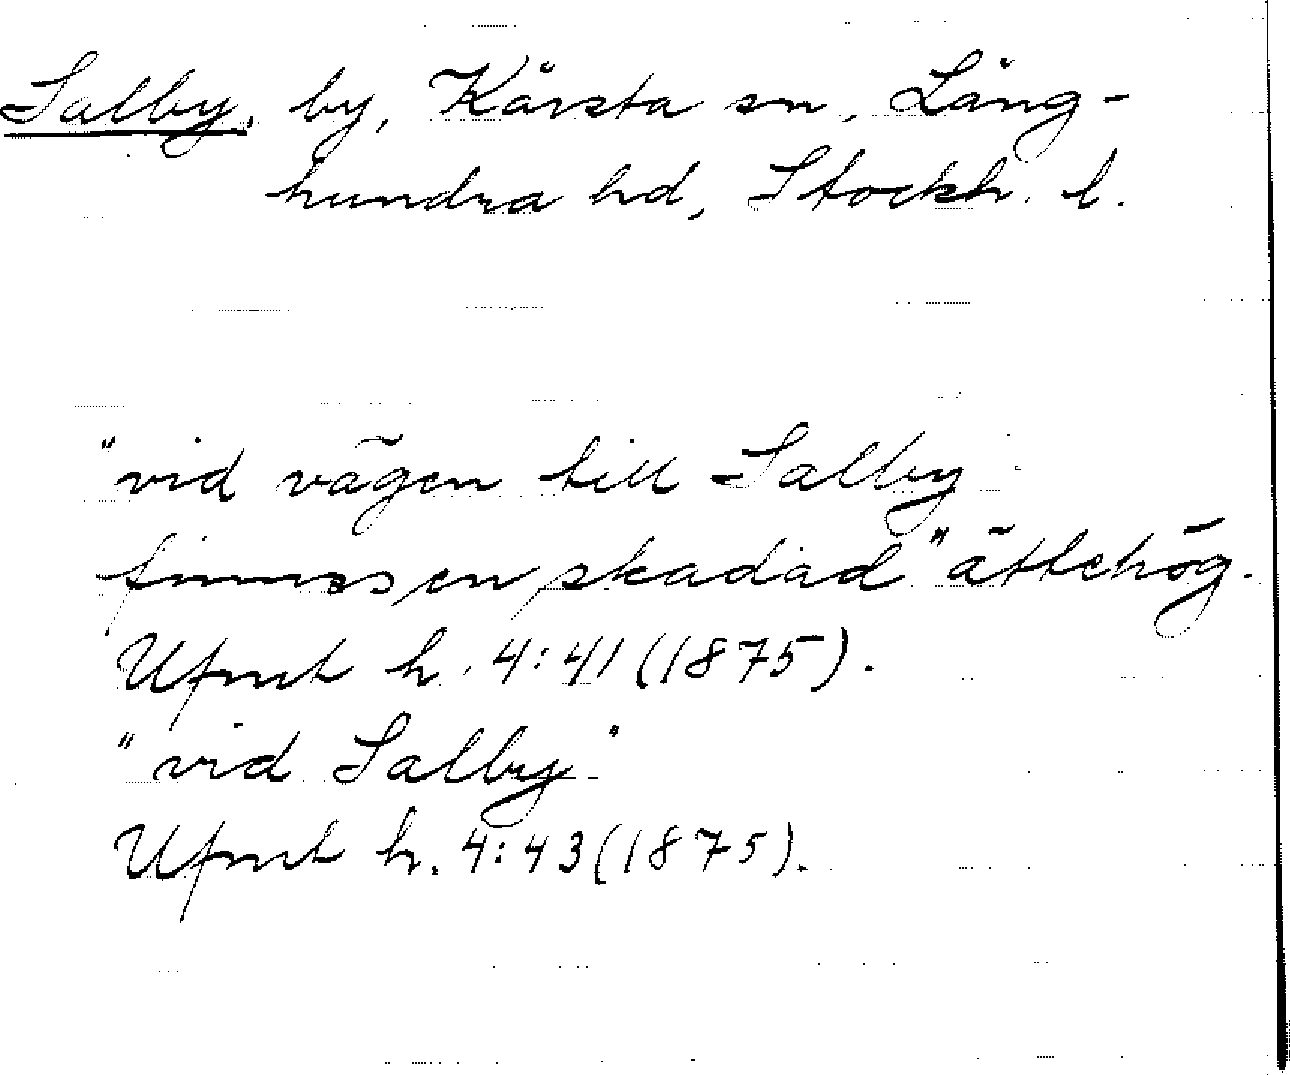 Salby, by, Kårsta sn, Lång-
hundra hd, Stockh. l.
"vid vägen till Salby
finnes en skadad" ättehög.
Ufmt h. 4:41 (1875).
"vid Salby"
Ufmt h. 4:43 (1875).